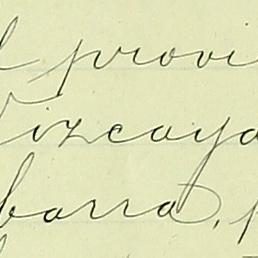 l provi
Vizcaya
barra, p